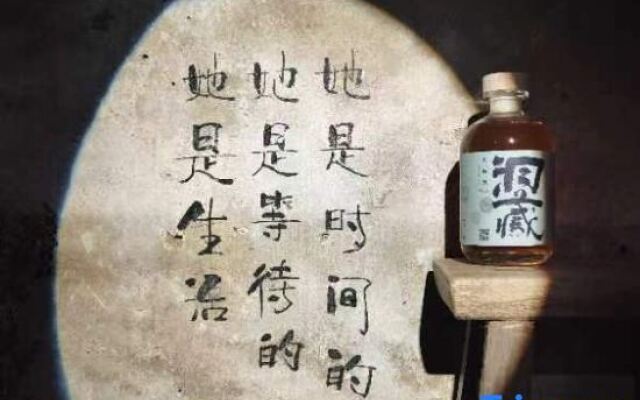 她是时间的
她是等待的
她是生活
洞藏